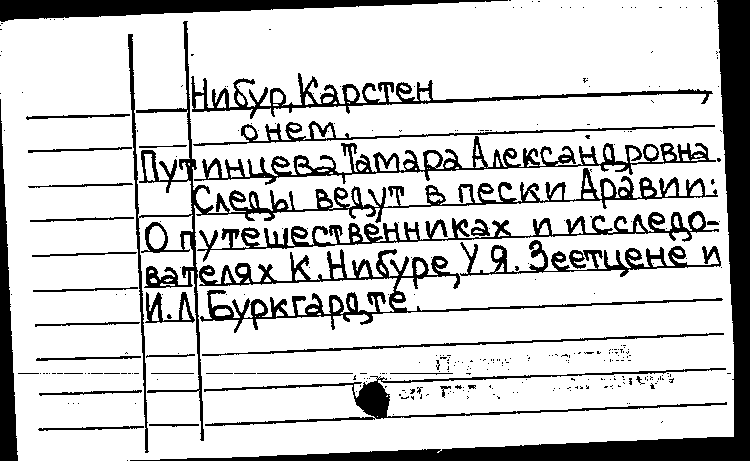 Нибур, Карстен
о нем.
Путинцева, Тамара Александровна.
Следы ведут в пески Аравии:
О путешественниках и исследо-
вателях К. Нибуре, У.Я. Зеетцене и
И.Л. Буркгардте.